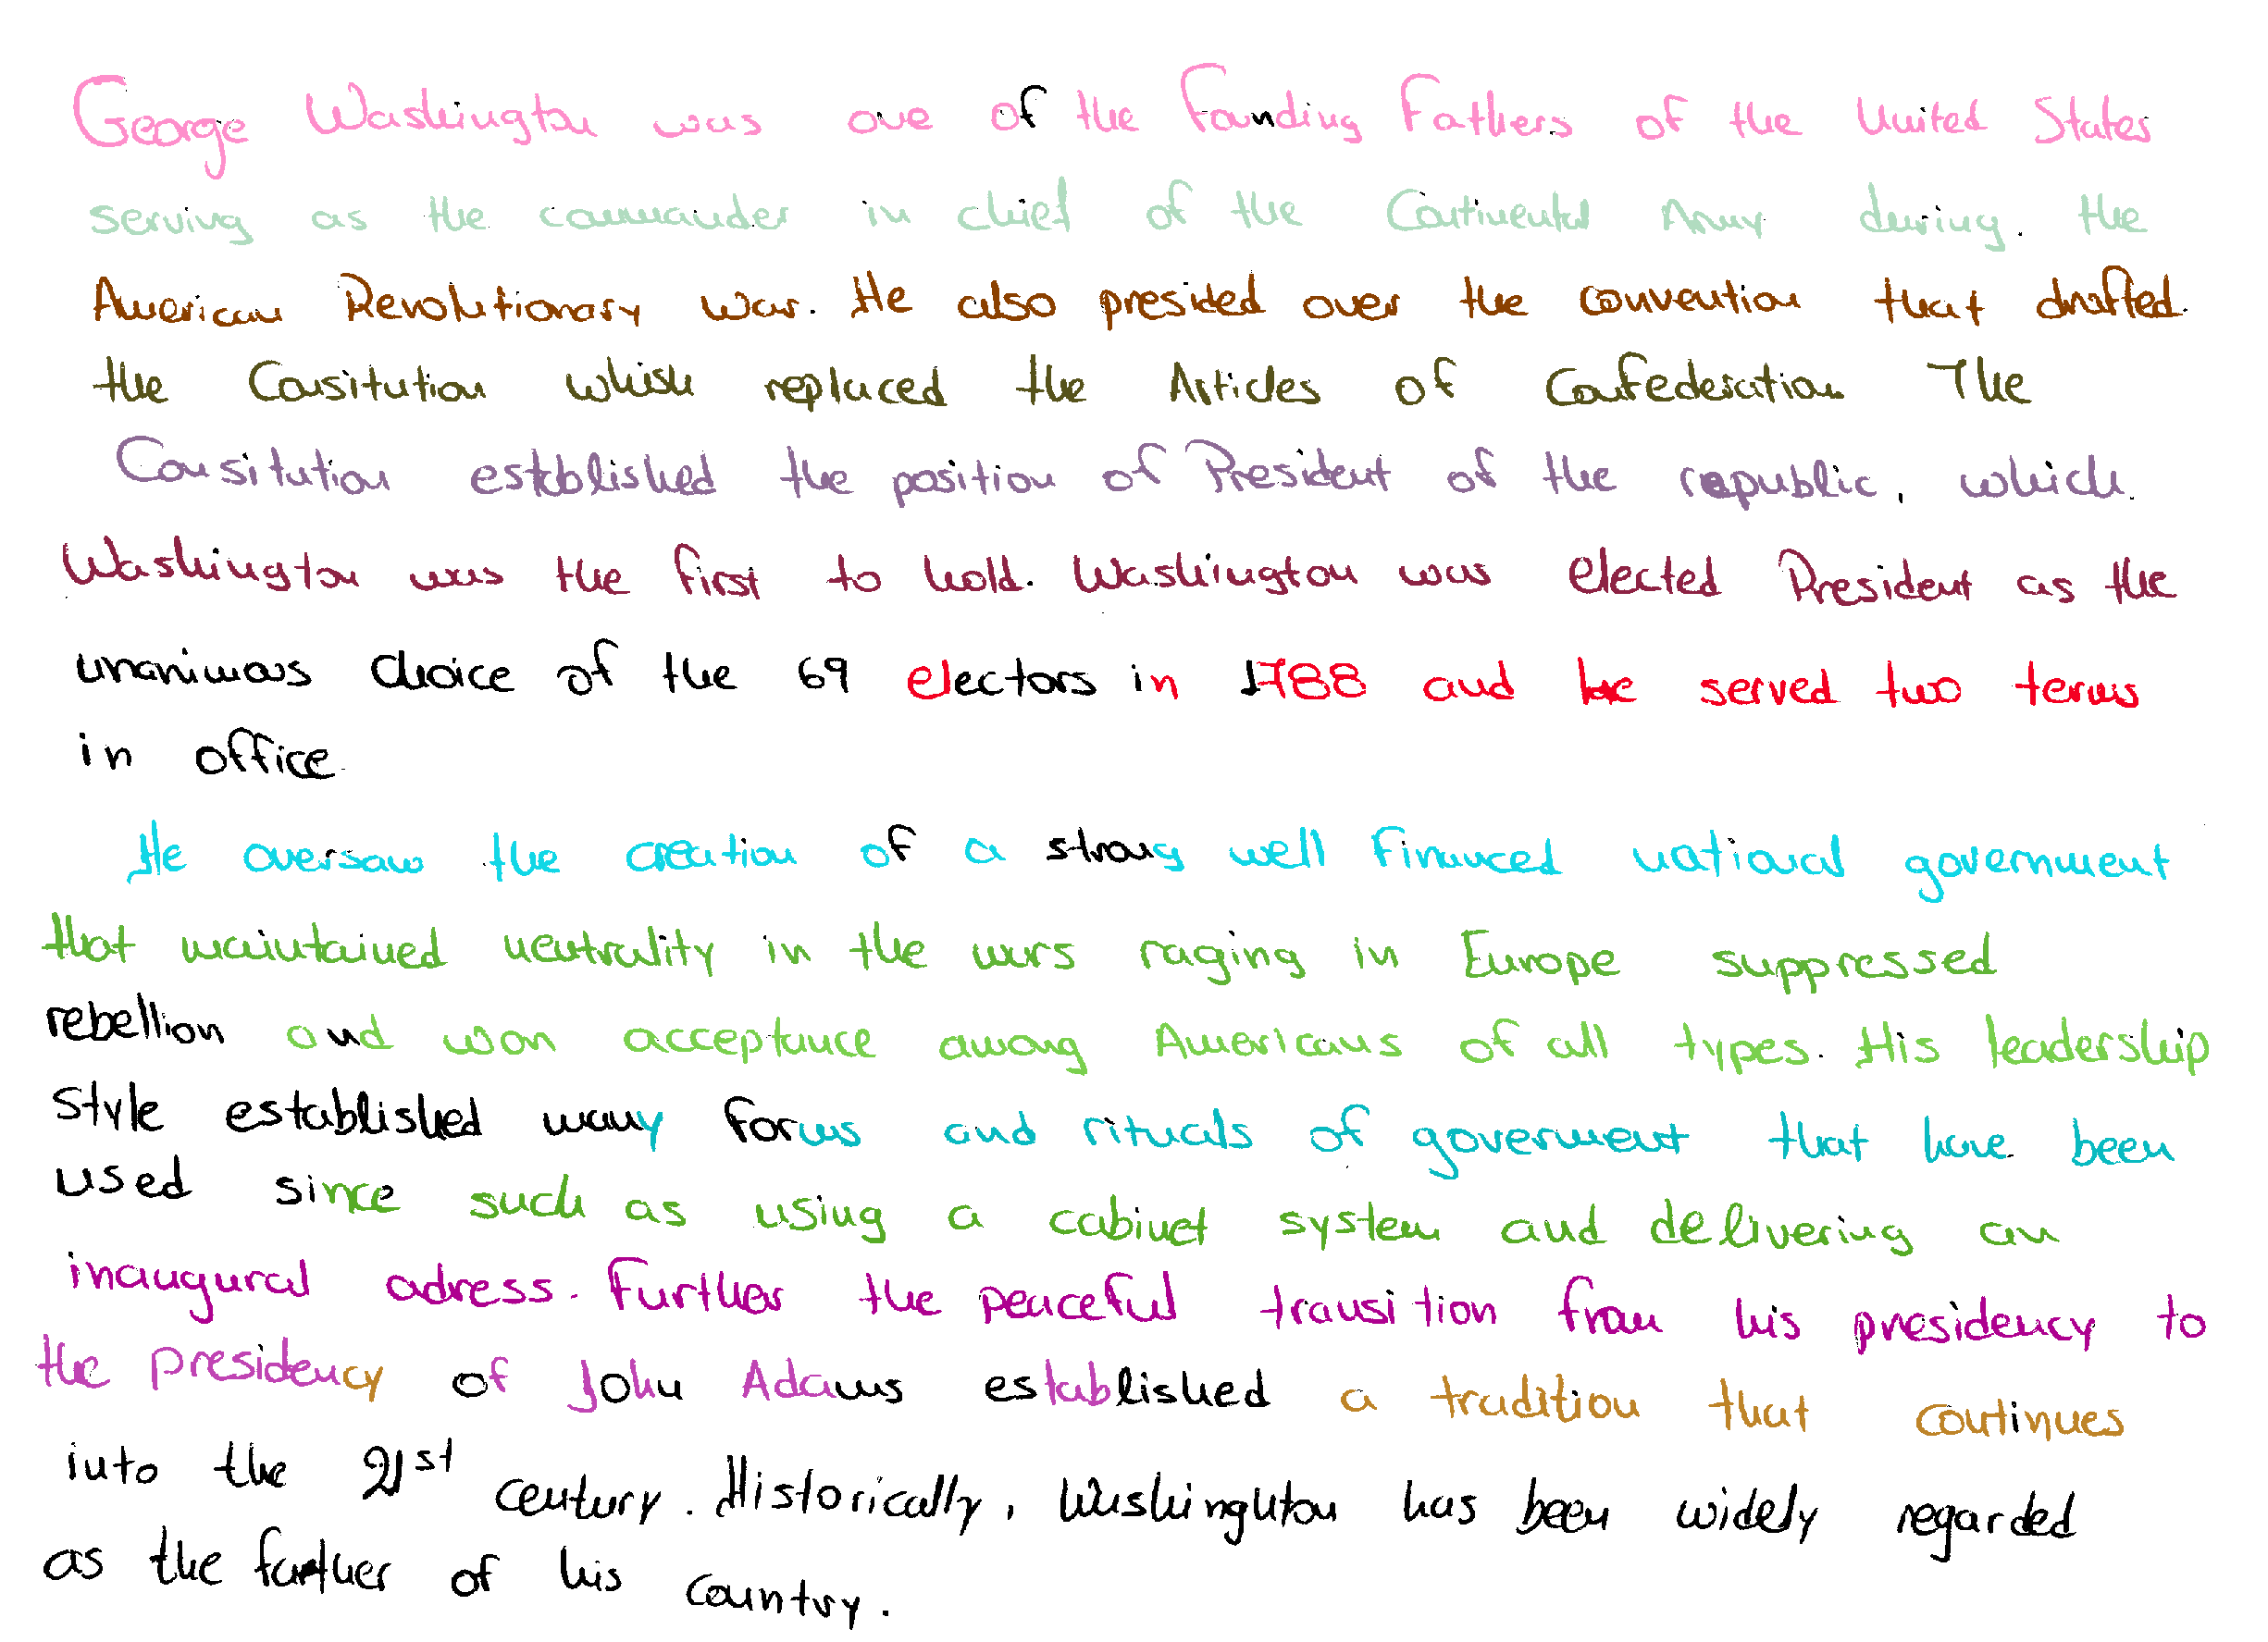 George Washington was one of the Founding Fathers of the United States
serving as the commander in chief of the Continental Army during the
American Revolutionary war. He also presided over the convention that drafted
the Consitution which replaced the Articles of Confederation The
Consitution established the position of President of the republic, which
Washington was the first to hold. Washington was elected President as the
unanimous choice of the 69 electors in 1788 and he served two terms
in office
He oversaw the creation of a strong well financed national government
that maintained neutrality in the wars raging in Europe suppressed
rebellion and won acceptance among Americans of all types. His leadership
style established many forms and rituals of goverment that have been
used since such as using a cabinet system and delivering an
inaugural adress. Further the peaceful transition from his presidency to
the presidency of John Adams established a tradition that continues
into the 21st century. Historically, Washinghton has been widely regarded
as the father of his country.